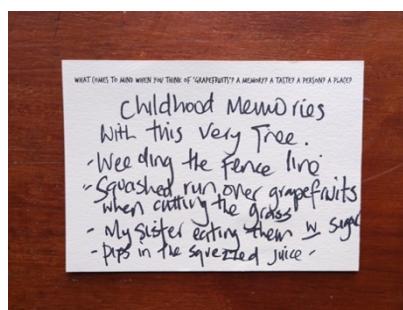 WHAT COMES TO MIND WHEN YOU THINK OF 'GRAPEFRUITS'? A MEMORY? A TASTE? A PERSON? A PLACE?
Childhood Memories
With this very Tree.
- Weeding the Fence line
- Squashed run over grapefruits
when cutting the grass
- My sister eating them w sugar
- pips in the squeezed juice -